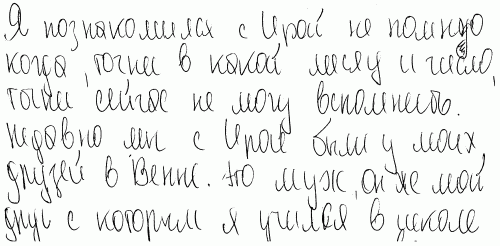 Я познакомился с Ирой не помню
когда, точни в какой месяц и число
точни сейчас не могу вспомнеть.
недавно мы с Ирой были у моих
друзей в Венне. Ею муж, он же мой
друг с которым я учился в школе